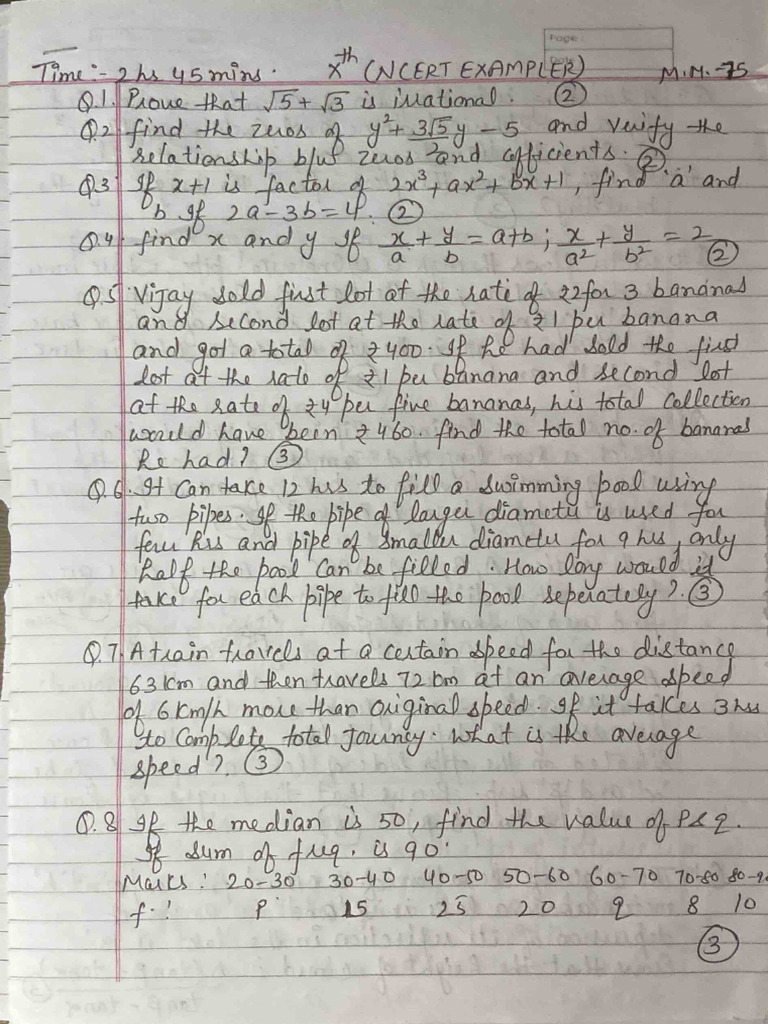 Page:
Time:- 2 hs 45 mins. Xth (NCERT EXAMPLER) M.M.-75
Q.1. Prove that √5 + √3 is irrational. (2)
Q.2 find the zeros of y² + 3√5/2 y - 5 and verify the
relationship b/w zeros and cofficients. (2)
Q.3 If x+1 is factor of 2x³ + ax² + bx + 1, find 'a' and
b If 2a - 3b = 4. (2)
Q.4 find x and y If x/a + y/b = a+b ; x/a² + y/b² = 2 (2)
Q.5 Vijay sold first lot at the rate of ₹2 for 3 bananas
and second lot at the rate of ₹1 per banana
and got a total of ₹400. If he had sold the first
lot at the rate of ₹1 per banana and second lot
at the rate of ₹4 per five bananas, his total collection
would have been ₹460. find the total no. of bananas
he had? (3)
Q.6. It Can take 12 hrs to fill a swimming pool using
two pipes. If the pipe of larger diameter is used for
four hrs and pipe of smaller diameter for 9 hrs, only
half the pool can be filled. How long would it
take for each pipe to fill the pool seperately?. (3)
Q.7 A train travels at a certain speed for the distance
63 km and then travels 72 km at an average speed
of 6 km/h more than original speed. If it takes 3 hrs
to complete total journey. what is the average
speed?. (3)
Q.8 If the median is 50, find the value of P & q.
If sum of freq. is 90.
Marks : 20-30 30-40 40-50 50-60 60-70 70-80 80-90
f. : P 15 25 20 q 8 10
(3)